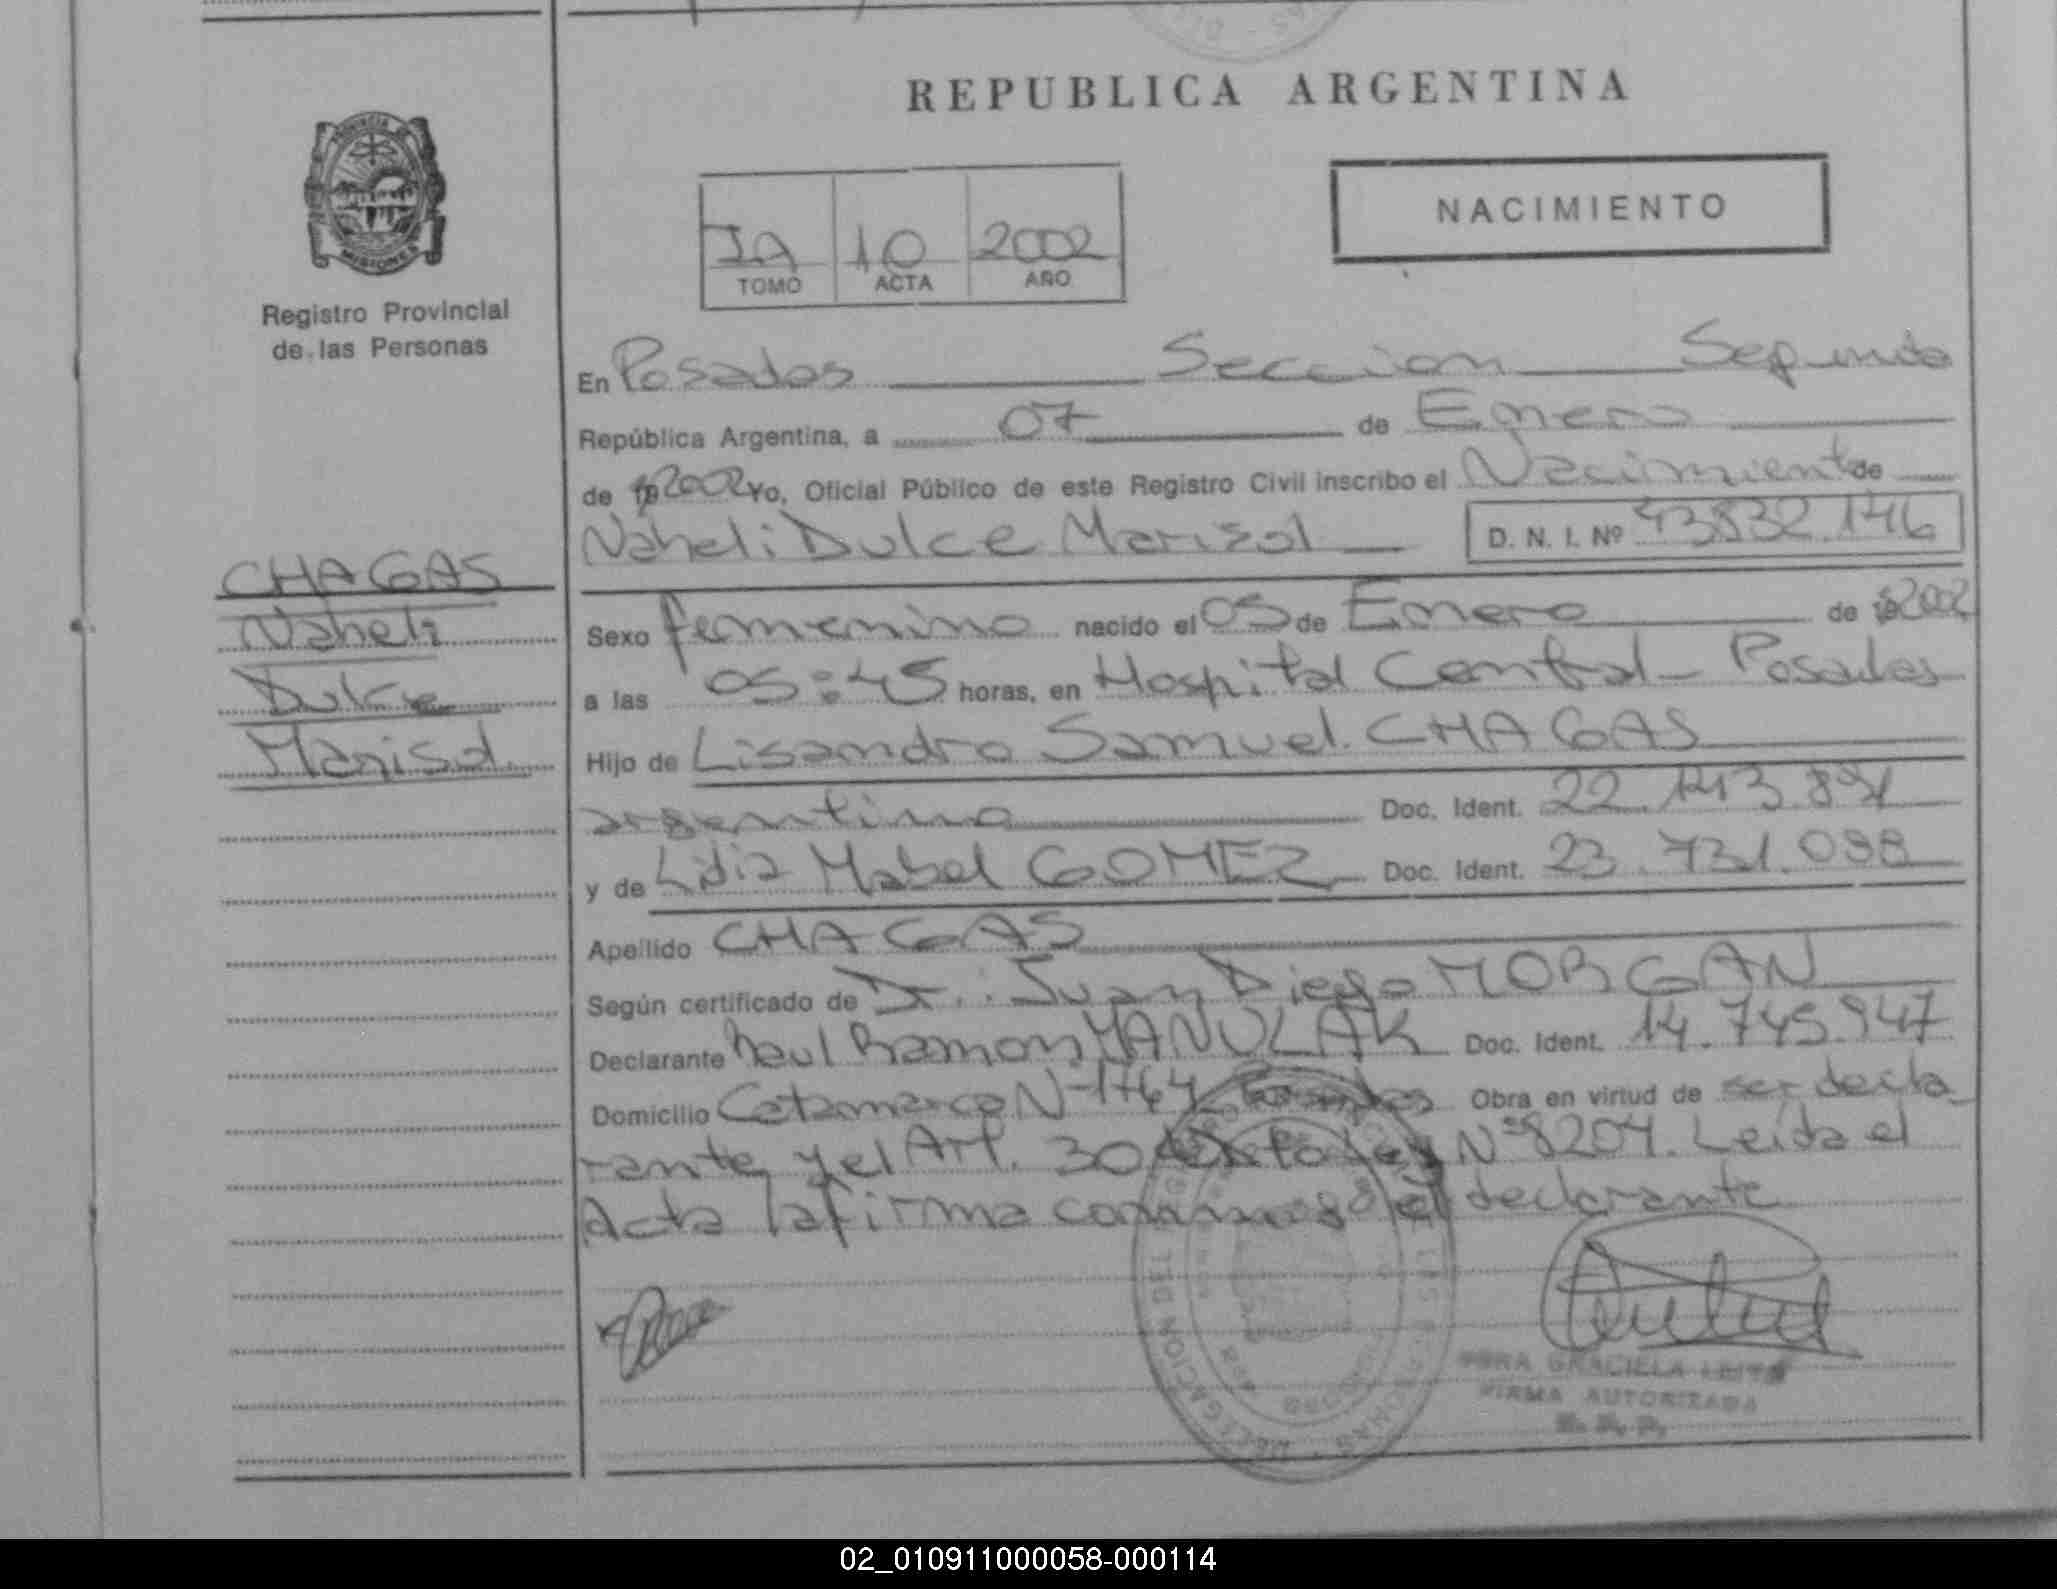 REPUBLICA ARGENTINA
NACIMIENTO
PROVINCIA DE
MISIONES
Registro Provincial
de las Personas
10 2002
TOMO ACTA AÑO
En Posadas Seccion Segunda
República Argentina, a 07 de Enero
de 19 2002 Yo, Oficial Público de este Registro Civil inscribo el Nacimiento de
Naheli Dulce Marisol D. N. I. Nº 43832.146
CHAGAS
Naheli
Dulce
Marisol
Sexo femenino nacido el 05 de Enero de 19 2002
a las 05:45 horas, en Hospital Central - Posadas
Hijo de Lisandro Samuel CHAGAS
argentino Doc. Ident. 22.
y de Lidia Mabel GOMEZ Doc. Ident. 23.731.088
Apellido CHAGAS
Según certificado de Dr. Juan Diego MORGAN
Declarante Raul Ramon YANULAK Doc. Ident. 14.745.947
Domicilio Catamarca Nº 1764 Posadas Obra en virtud de ser decla
rante y el Art. 30 Ley Nº 8204. Leida el
Acta la firma conmigo el declarante
DELEGACION DEL
GRACIELA
FIRMA AUTORIZADA
02_010911000058-000114